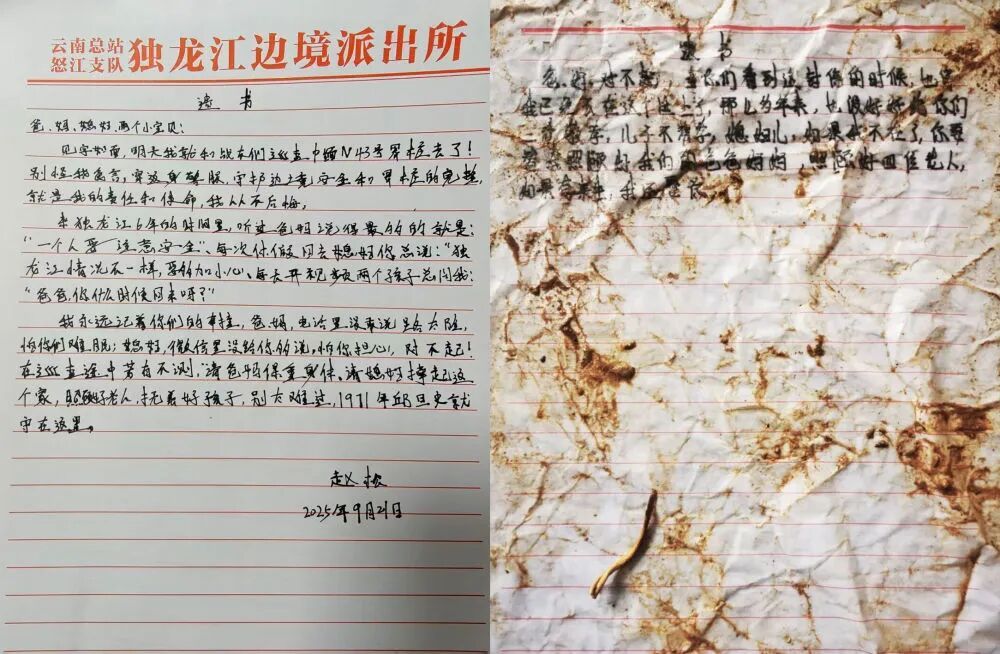 云南总站
怒江支队 独龙江边境派出所
遗书
爸、妈、媳妇、两个小宝贝:
见字如面,明天我就和战友们巡查中缅N43号界桩去了!
别怪我食言,穿这身,守护边境安全和界桩的完整,
就是我的责任和使命,我从不后悔。
来独龙江6年的时间里,听过爸妈说得最多的就是:
“一个人要注意安全”,每次休假回去媳妇你总说:“独
龙江情况不一样,要多加小心”,每天开视频两个孩子总问我:
“爸爸,你什么时候回来呀?”
我永远记着你们的牵挂,爸妈,电话里没敢说路太险,
怕你们难眠;媳妇,微信里没给你多说,怕你担心,对不起!
在巡查途中若有不测,请爸妈保重身体,请媳妇撑起这
个家,照顾好老人,抚养好孩子,别太难过,1971年就
守在这里。
赵松
2025年9月21日
遗书
爸、妈对不起,当你们看到这封信的时候,也许
我已经不在这个世上了,那么多年来,也没好好给你们
孝,儿子不孝,媳妇儿,如果我不在了,你要
照顾好我们的爸爸妈妈,照顾好四位老人,
如果有来生,我还